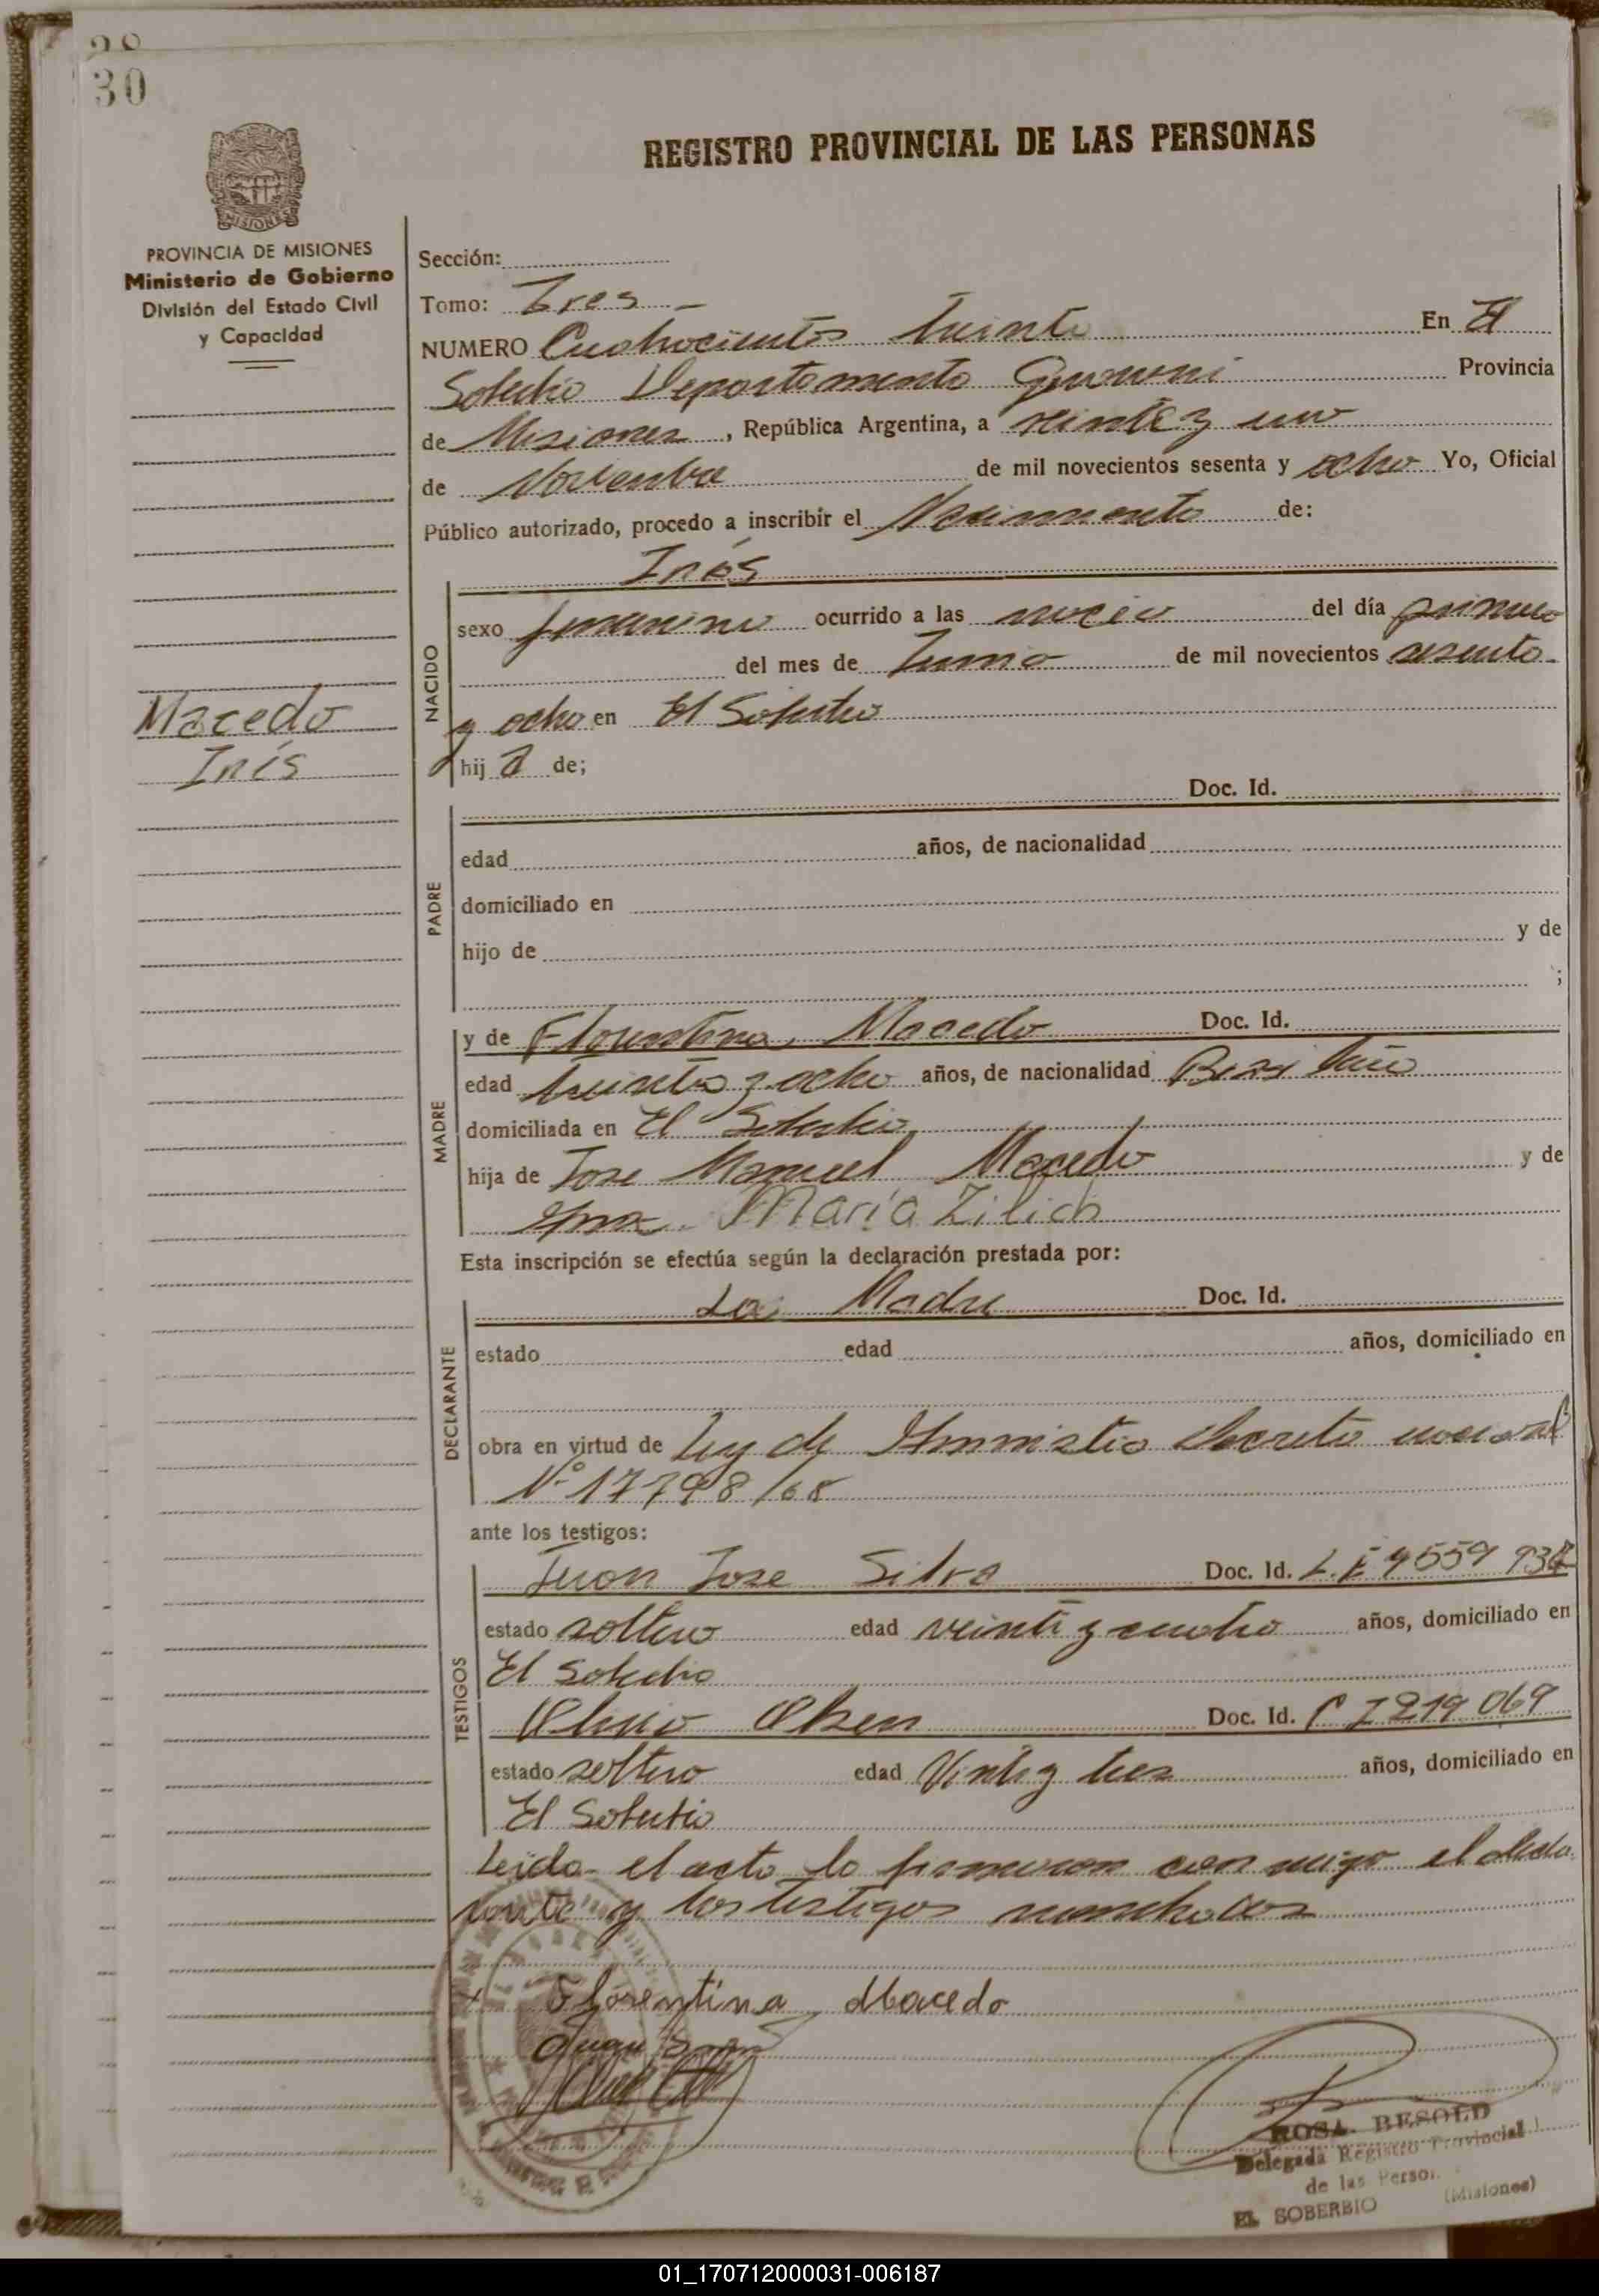 30
REGISTRO PROVINCIAL DE LAS PERSONAS
MISIONES
PROVINCIA DE MISIONES
Ministerio de Gobierno
División del Estado Civil
y Capacidad
Macedo
Inés
Sección:
Tomo: Tres
NUMERO Cuatrocientos treinta En El
Soberbio Departamento Guarani Provincia
de Misiones, República Argentina, a veinte y uno
de Noviembre de mil novecientos sesenta y ocho Yo, Oficial
Público autorizado, procedo a inscribir el Nacimiento de:
Inés
NACIDO
sexo femenino ocurrido a las nueve del día primero
del mes de Junio de mil novecientos sesenta
y ocho en El Soberbio
hija de;
Doc. Id.
PADRE
edad años, de nacionalidad
domiciliado en
hijo de y de
;
MADRE
y de Florentina Macedo Doc. Id.
edad treinta y ocho años, de nacionalidad
domiciliada en El Soberbio
hija de Jose Manuel Macedo y de
María Zilich
Esta inscripción se efectúa según la declaración prestada por:
La Madre Doc. Id.
DECLARANTE
estado edad años, domiciliado en
obra en virtud de Ley de Amnistia Decreto nacional
Nº 17798/68
ante los testigos:
TESTIGOS
Juan Jose Silva Doc. Id. L.E
estado soltero edad veinte y cuatro años, domiciliado en
El Soberbio
Olsen Doc. Id. C I 219 069
estado soltero edad Veinte y tres años, domiciliado en
El Soberbio
Leida el acta la firmaron con migo el decla
rante y los testigos nombrados
Florentina Macedo
Juan
ROSA BESOLD
Delegada Registro Provincial
de las Person
EL SOBERBIO (Misiones)
01_170712000031-006187